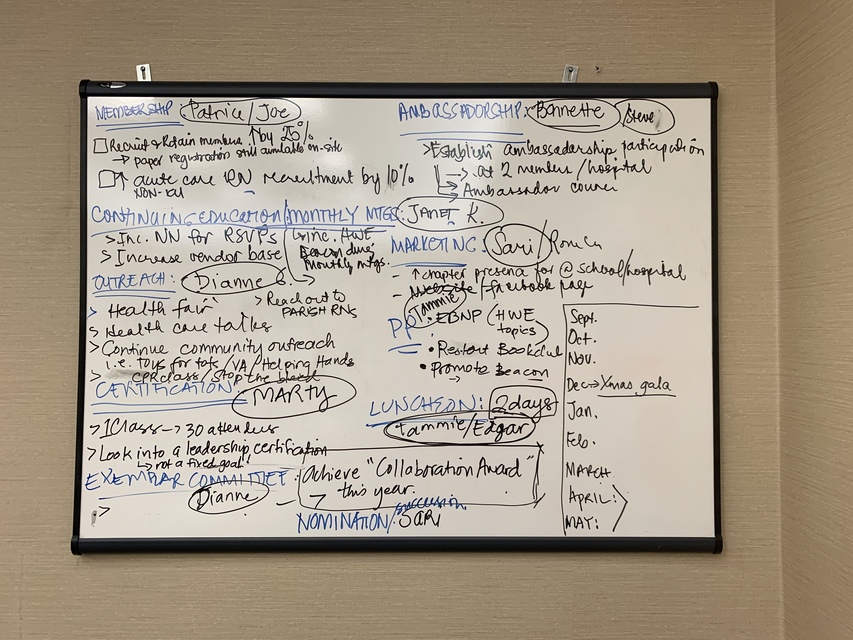 MEMBERSHIP: Patrice/Joe
Recruit & Retain members ↑ by 25%
→ paper registration still available on-site
↑ acute care RN recruitment by 10%
NON-ICU
CONTINUING EDUCATION/MONTHLY MTGS: JANET K.
> Inc. NN for RSVPs
> Increase vendor base
inc. HWE
Beacon during
Monthly mtgs.
OUTREACH: Dianne
> Health fair
> Reach out to
PARISH RNs
> Health care talks
> Continue community outreach
i.e. toys for tots/VA/Helping Hands
> CPR class/Stop the bleed
CERTIFICATION: MARTY
> 1 Class → 30 attendees
> Look into a leadership certification
↳ not a fixed goal
EXEMPLAR COMMITTEE:
Dianne
>
AMBASSADORSHIP: Bonnette/Steve
> Establish ambassadorship participation
→ at 2 members/hospital
→ Ambassador
MARKETING: Sari/
- ↑ chapter presence for @ school/hospital
- Website/facebook page
Tammie
PP
• EBNP (HWE
topics)
• Restart
• Promote Beacon
→
LUNCHEON: 2 days
Tammie/Edgar
Achieve "Collaboration Award"
this year.
NOMINATION/succession
SARI
Sept.
Oct.
Nov.
Dec → Xmas gala
Jan.
Feb.
MARCH
APRIL:
MAY: